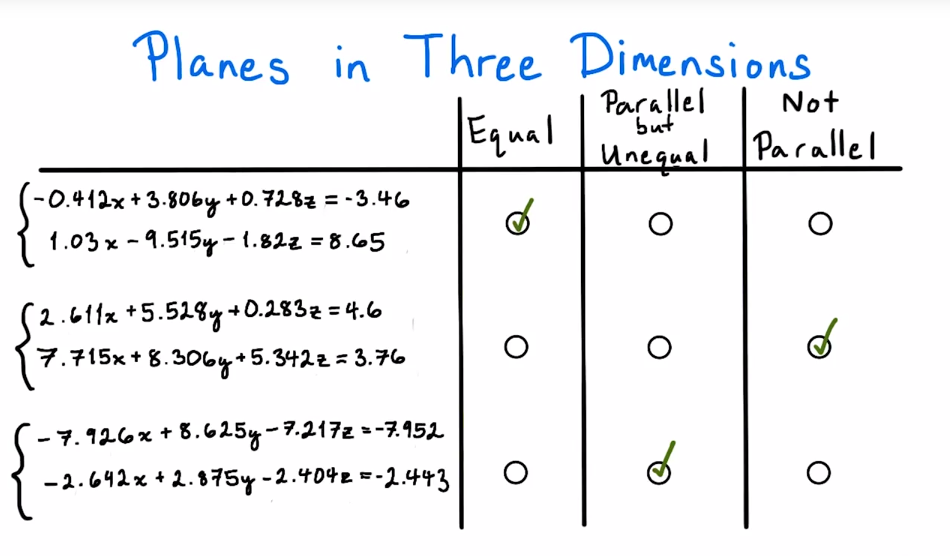 Planes in Three Dimensions
Equal
Parallel
but
Unequal
Not
Parallel
-0.412x+3.806y+0.728z=-3.46
1.03x-9.515y-1.82z=8.65
2.611x+5.528y+0.283z=4.6
7.715x+8.306y+5.342z=3.76
-7.926x+8.625y-7.217z=-7.952
-2.642x+2.875y-2.404z=-2.443